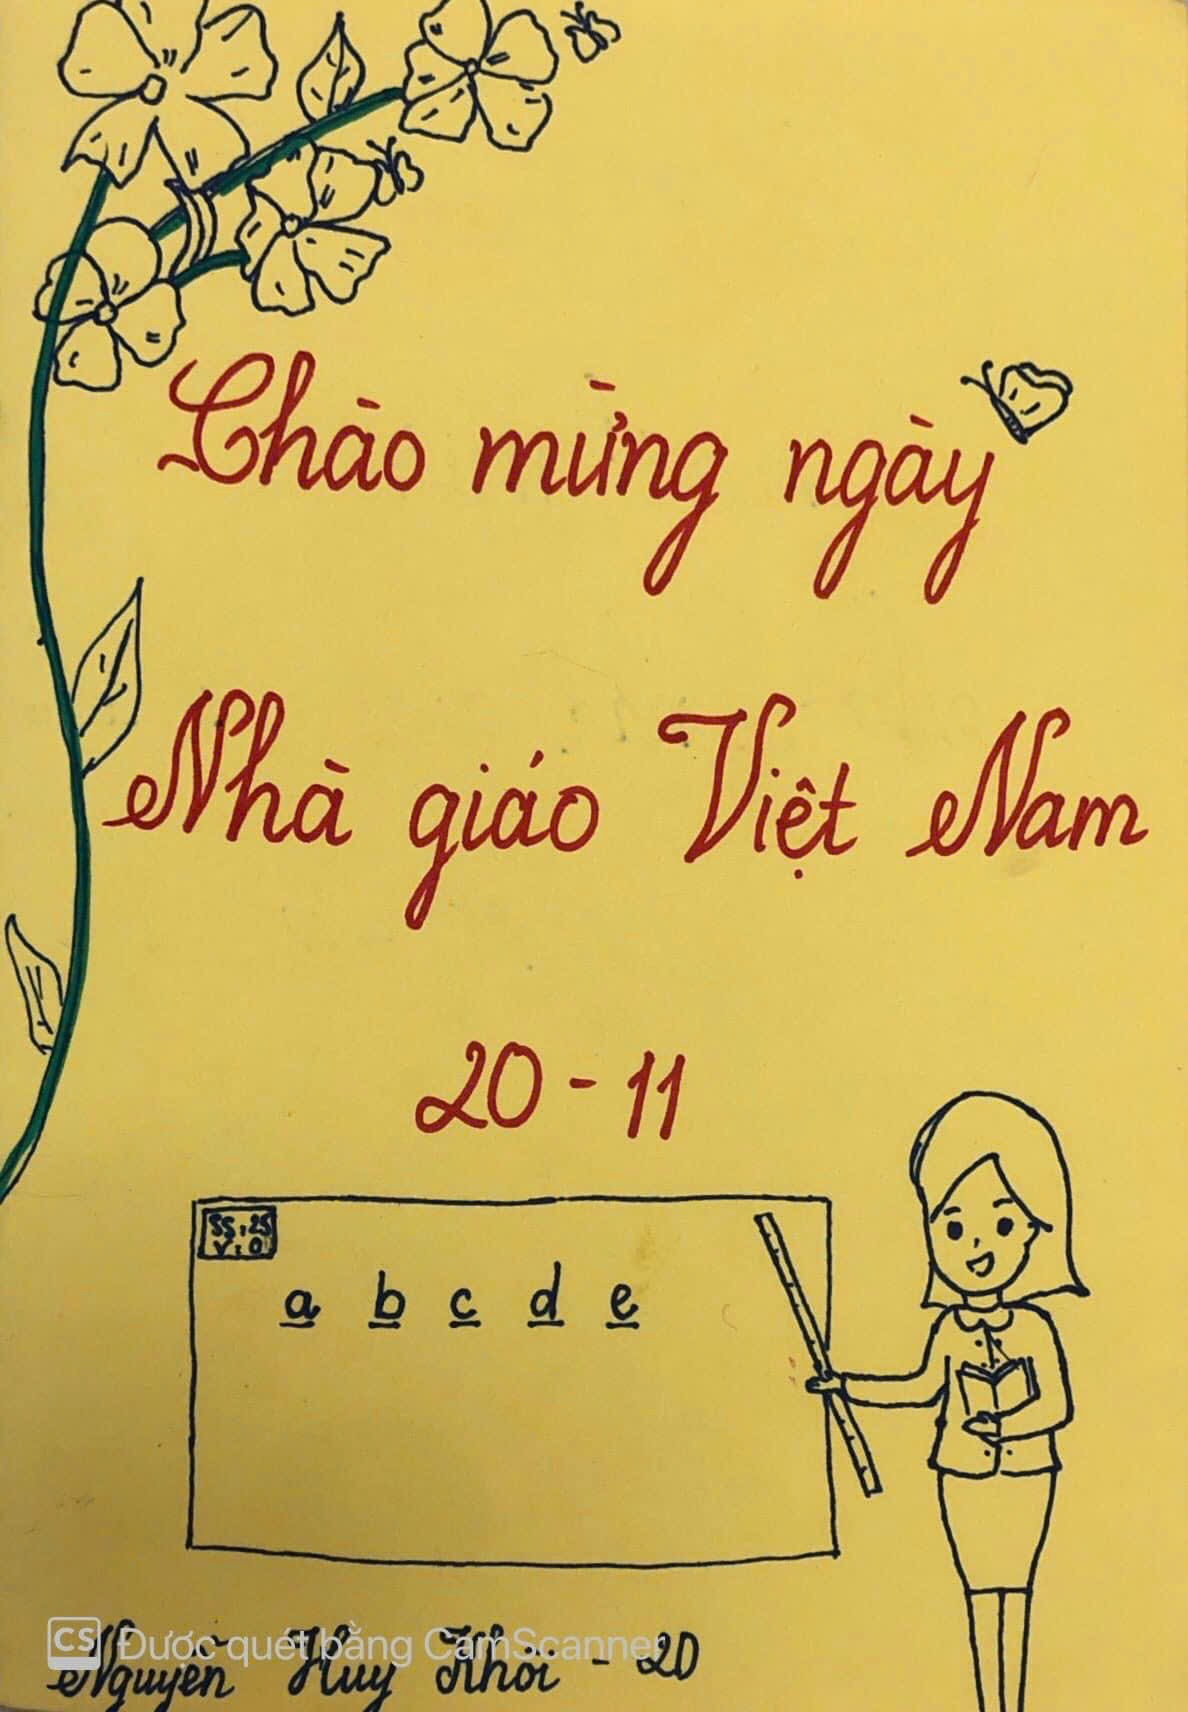 Chào mừng ngày
Nhà giáo Việt Nam
20 - 11
SS: 25
V: 0
a b c d e
CS Được quét bằng CamScanner
Nguyễn Huy Khôi - 2D